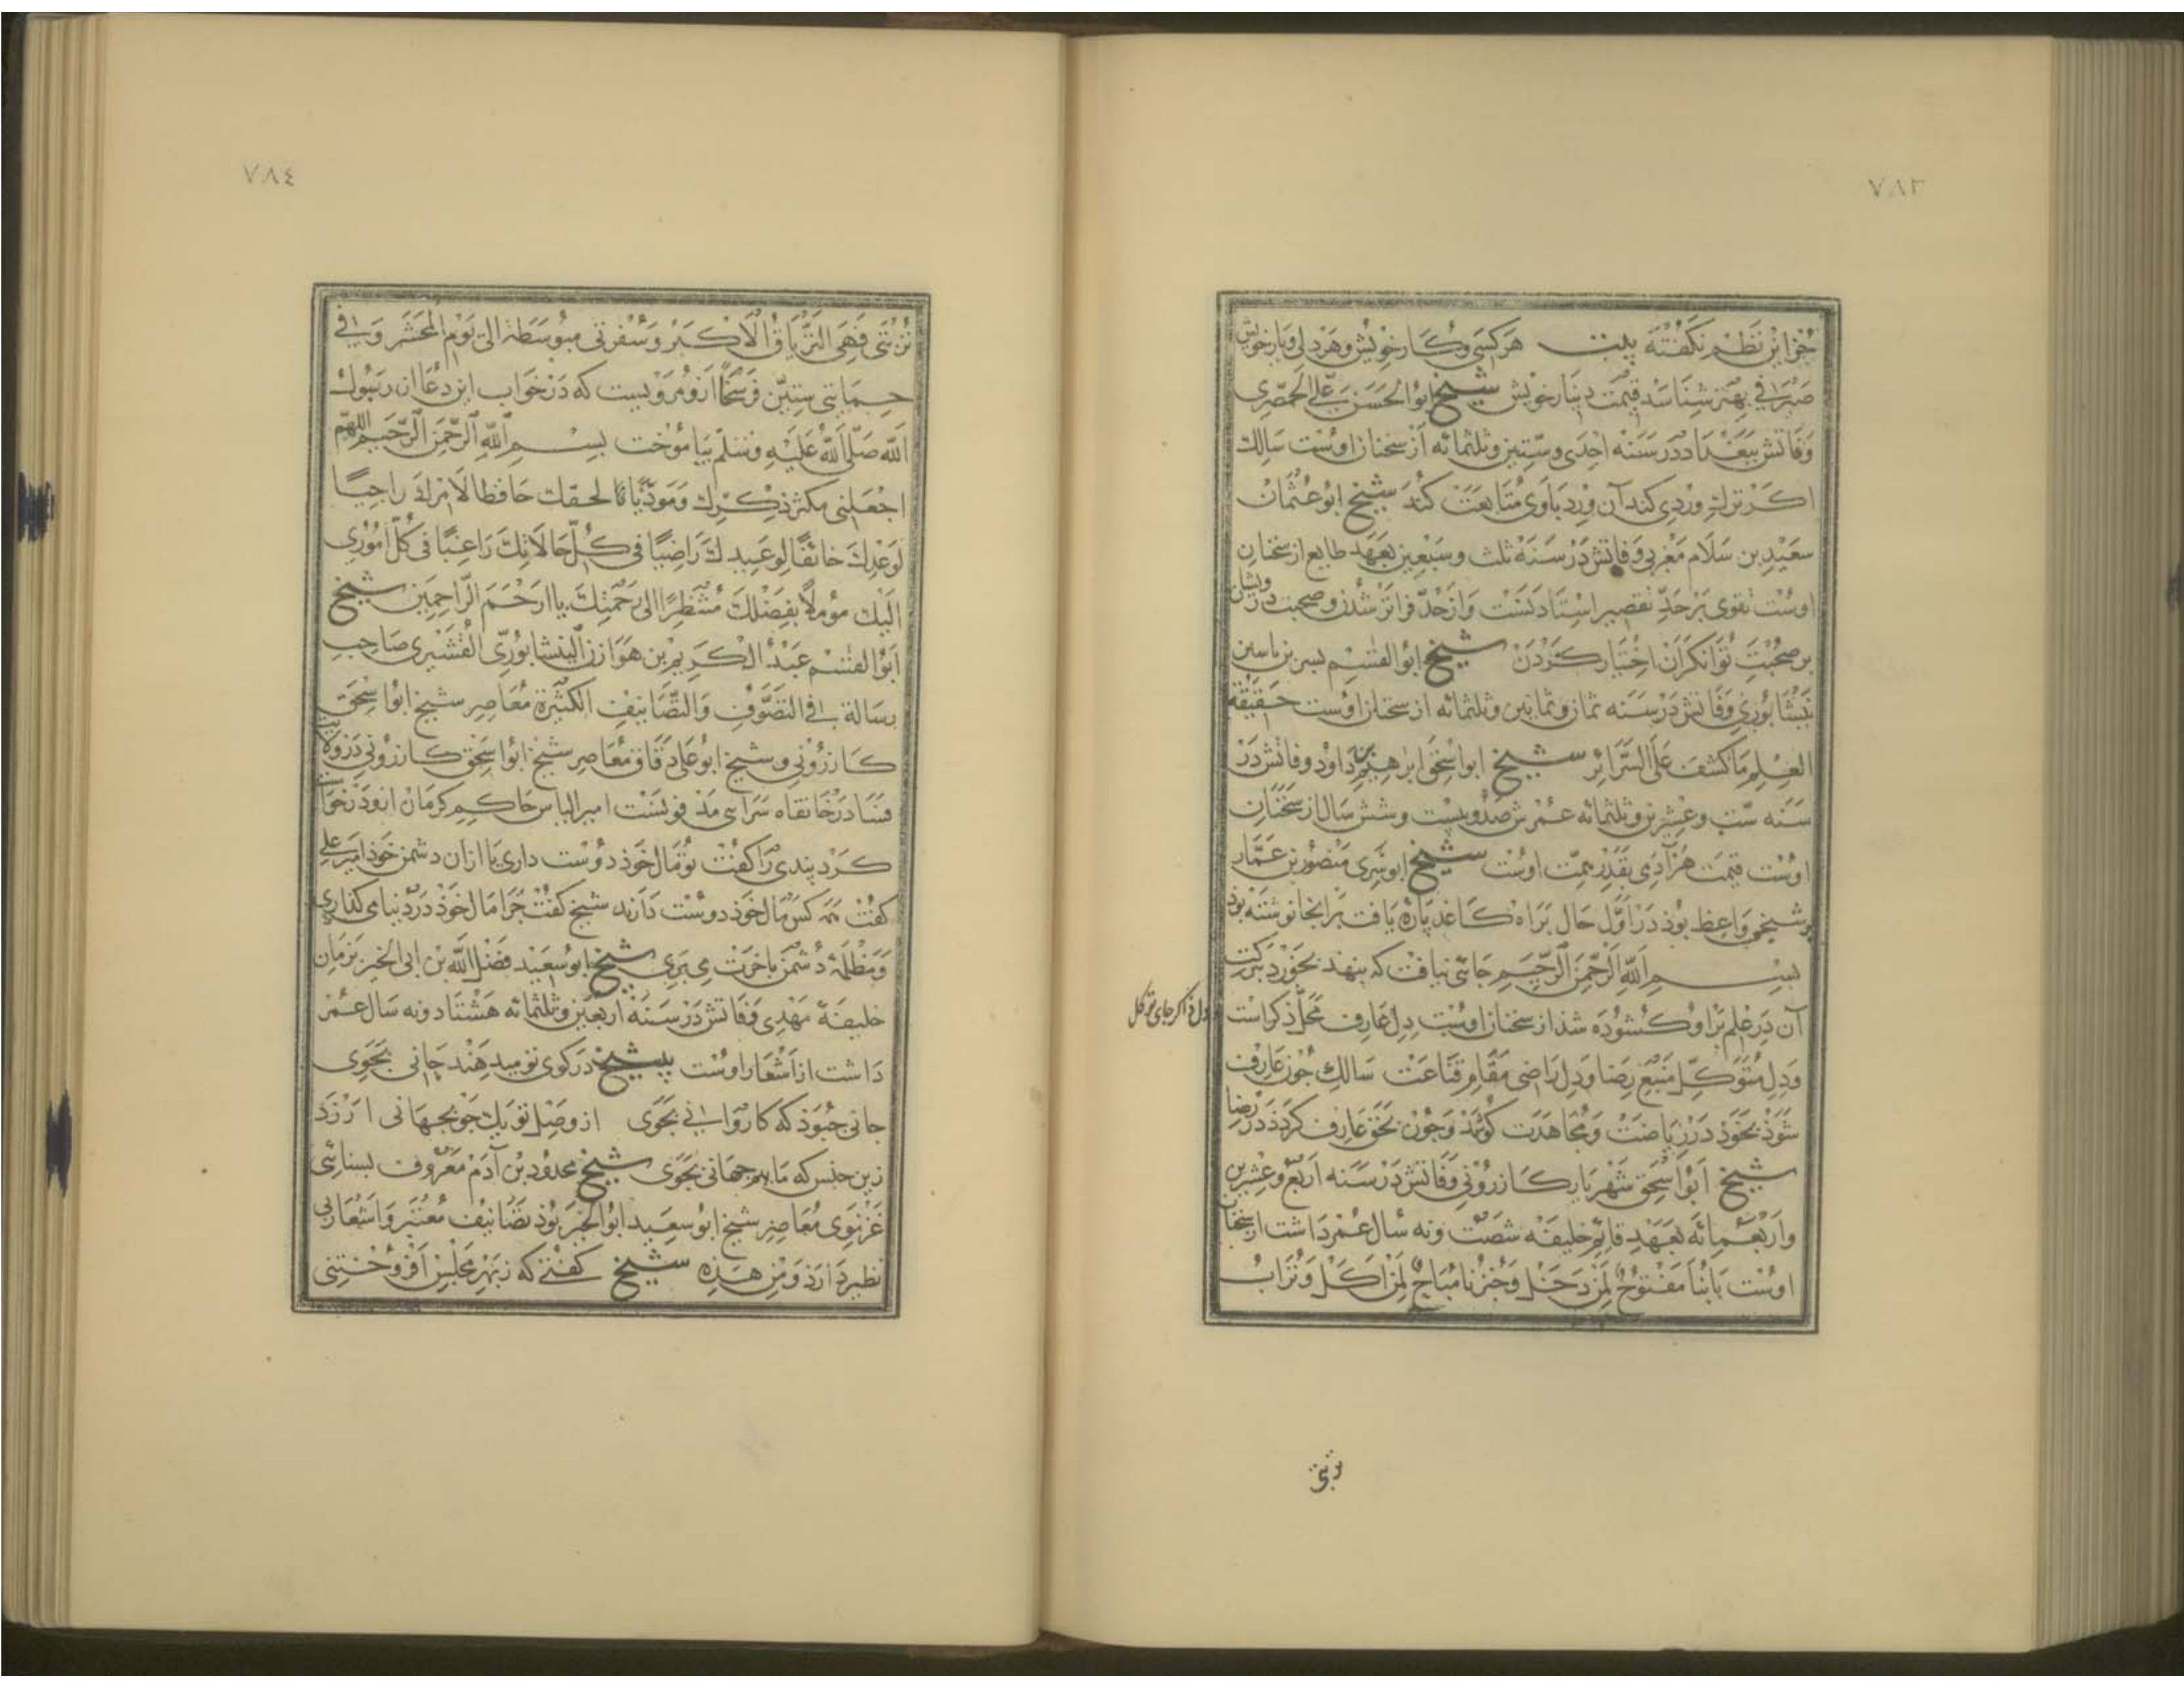 ٧٨٣
جزاین نظم نکفته بیت هرکسی و کار خویش و هر دلی و یار خویش
صیرافی بهتر شناسد قیمت دینار خویش شیخ ابوالحسن علی الحصری
وفاتش ببغداد در سنه احدی و ستین و ثلثمائه از سخنان اوست سالک
اکر ترک وردی کند آن ورد باوی متابعت کند شیخ ابو عثمان
سعید بن سلام مغربی وفاتش در سنه ثلث و سبعین بعهد طایع از سخنان
اوست تقوی بر حد تقصیر استادنست و از حد فراتر شدن و صحبت درویشان
بر صحبت توانکران اختیار کردن شیخ ابوالقسم بسر بن یاسین
نیشابوری وفاتش در سنه ثمان و ثمانین و ثلثمائه از سخنان اوست حقیقة
العلم ما کشف علی السرائر شیخ ابواسحق ابرهیم بن داود وفاتش در
سنه ست و عشرین و ثلثمائه عمرش صد و بیست و شش سال از سخنان
اوست قیمت هر آدمی بقدر همت اوست شیخ ابو سری منصور بن عمار
بوشنجی واعظ بوذ در اول حال براه کاغذ پاره یافت برانجا نوشته بوذ
بسم الله الرحمن الرحیم جائی نیافت که بنهد بخورد ببرکت
آن در علم برا و کشوده شذ از سخنان اوست دل عارف محل ذکر است
دل ذاکر جای توکل
و دل متوکل منبع رضا و دل راضی مقام قناعت سالک چون عارف
شوذ بخوذ در ریاضت و مجاهدت کوشذ و چون بحق عارف کردذ در رضا
شیخ ابواسحق شهریار کازرونی وفاتش در سنه اربع و عشرین
و اربعمائه بعهد قایم خلیفه شصت و نه سال عمر داشت از سخنان
اوست بابنا مفتوح لمن دخل و خبزنا مباح لمن اکل و تراب
تربتی
٧٨٤
تربتی فهی التریاق الاکبر و سفرتی مبوسطة الی یوم المحشر و فی
حمایتی ستین فرسخا ازو مرویست که در خواب این دعا از رسول
الله صلی الله علیه و سلم بیاموخت بسم الله الرحمن الرحیم اللهم
اجعلنی مکثر ذکرک و مودیا لحقک حافظا لامرک راجیا
لوعدک خائفا لوعیدک راضیا فی کل حالاتک راغبا فی کل اموری
الیک موملا بفضلک منتظرا الی رحمتک یا ارحم الراحمین شیخ
ابوالقسم عبد الکریم بن هوازن النیشابوری القشیری صاحب
رسالة فی التصوف و التصانیف الکثیرة معاصر شیخ ابواسحق
کازرونی و شیخ ابو علی دقاق معاصر شیخ ابواسحق کازرونی در ولایت
فسا در خانقاه سرابی مذفونست امیر الیاس حاکم کرمان ازو درخواست
کرد پندی را کفت تو مال خوذ دوست داری یا از ان دشمن خوذ امیر علی
کفت همه کس مال خوذ دوست دارند شیخ کفت چرا مال خوذ در دنیا می کذاری
و مظلمه دشمن باخرت می بری شیخ ابوسعید فضل الله بن ابی الخیر بزمان
خلیفه مهدی وفاتش در سنه اربعین و ثلثمائه هشتاد و نه سال عمر
داشت از اشعار اوست شیخ در کوی تو میدهند جانی بجوی
جانی چبوذ که کاروانی بجوی از وصل تو یک جو بجهانی ارزد
زین جنس که ماییم جهانی بجوی شیخ مجدود بن آدم معروف بسنائی
غزنوی معاصر شیخ ابوسعید ابوالخیر بوذ تصانیف معتبر و اشعار بی
نظیر دارذ و من هذه شیخ کفتی که ز بهر مجلس افروختنی